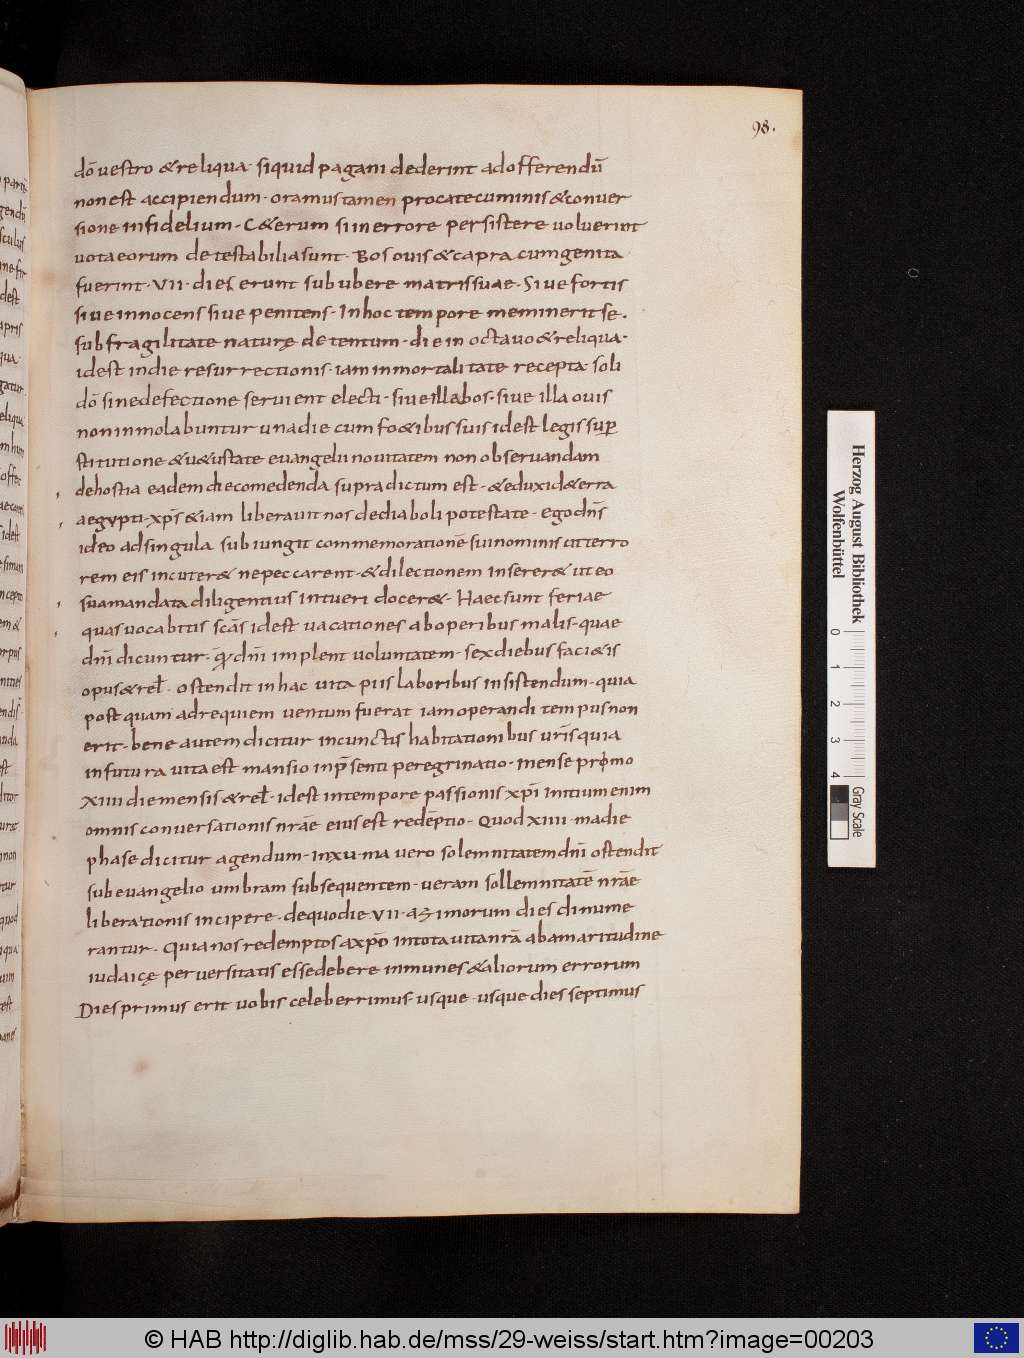 98.
dō uestro & reliqua· siquid pagani dederint ad offerendū
non est accipiendum· oramus tamen pro catecuminis & conuer
sione infidelium· C&erum si in errore persistere uoluerint
uota eorum detestabilia sunt· Bos ouis & capra cum genita
fuerint· VII· dies erunt sub ubere matris suae· Siue fortis
siue innocens siue penitens· In hoc tempore meminerit se·
sub fragilitate naturę detentum· die in octauo & reliqua·
id est in die resurrectionis· iam inmortalitate recepta· soli
dō sine defectione seruient electi· siue illa bos· siue illa ouis
non inmolabuntur una die cum fo&ibus suis id est legis sup
stitutione & u&ustate euangelii nouitatem non obseruandam
de hostia eadem die comedenda supra dictum est· & eduxi de terra
aegypti· xp̄s & iam liberauit nos de diaboli potestate· ego dn̄s
ideo ad singula subiungit commemorationē sui nominis ut terro
rem eis incuter& ne peccarent· & dilectionem inserer& ut eo
sua mandata diligentius intueri docer&· Haec sunt feriae
quas uocabitis scās id est uacationes ab operibus malis· quae
dn̄i dicuntur· q̄ dn̄i implent uoluntatem· sex diebus faci&is
opus & rel̄· ostendit in hac uita piis laboribus insistendum· quia
post quam ad requiem uentum fuerat iam operandi tempus non
erit· bene autem dicitur in cunctis habitationibus ur̄is quia
in futura uita est mansio in p̄senti peregrinatio· mense primo
XIIII die mensis & rel̄· id est in tempore passionis xp̄i initium enim
omnis conuersationis nrāe eius est redēptio· Quod XIIII· ma die
phase dicitur agendum· in xu· ma uero solemnitatem dn̄i ostendit
sub euangelio umbram subsequentem· ueram sollemnitatē nrāe
liberationis incipere· de quo die VII· azimorum dies dinume
rantur· Quia nos redemptos a xp̄o in tota uita nrā ab amaritudine
iudaicę peruersitatis esse debere inmunes & aliorum errorum
Dies primus erit uobis celeberrimus· usque· usque dies septimus
Herzog August Bibliothek
Wolfenbüttel
0 1 2 3 4
Gray Scale
© HAB http://diglib.hab.de/mss/29-weiss/start.htm?image=00203